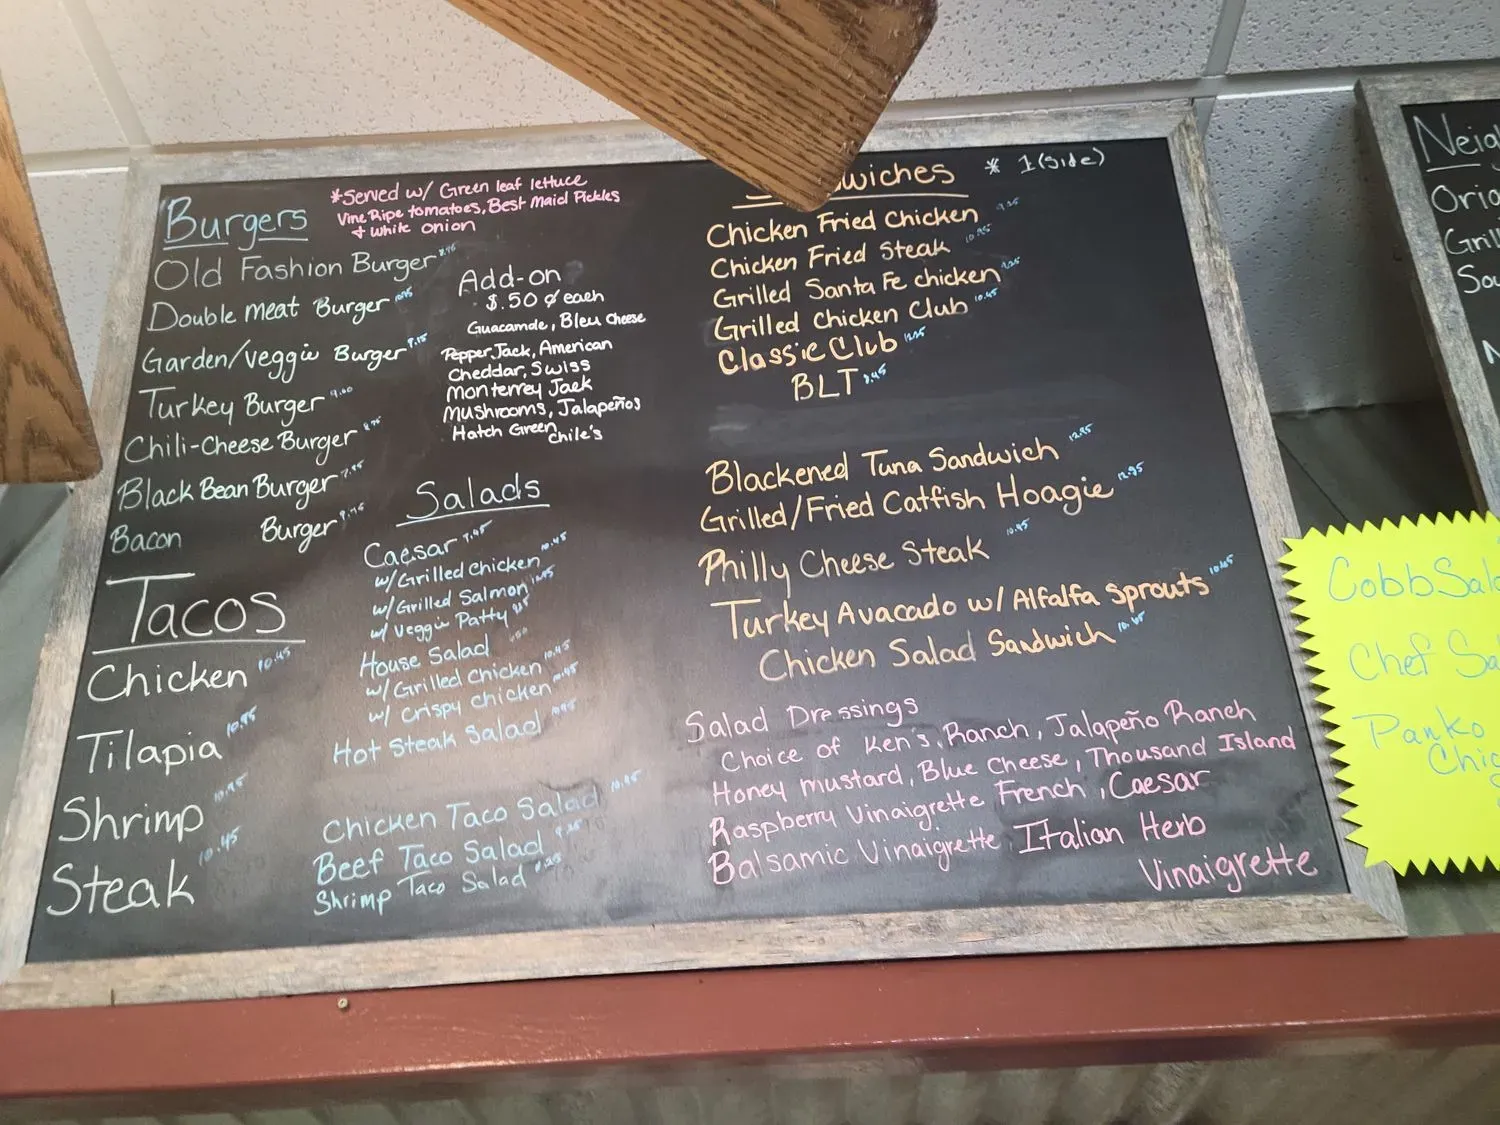 Burgers
*Served w/ Green leaf lettuce
Vine Ripe tomatoes, Best Maid Pickles
+ White onion
Old Fashion Burger
Double meat Burger
Garden/Veggie Burger
Turkey Burger
Chili-Cheese Burger
Black Bean Burger
Bacon Burger
Add-on
$.50¢ each
Guacamole, Bleu Cheese
Pepper Jack, American
Cheddar, Swiss
Monterrey Jack
Mushrooms, Jalapeños
Hatch Green
Chile's
Tacos
Chicken 10.45
Tilapia 10.95
Shrimp 10.95
Steak 10.45
Salads
Caesar
w/ Grilled Chicken 10.45
w/ Grilled Salmon
w/ Veggie Patty
House Salad
w/ Grilled Chicken 10.45
w/ Crispy Chicken 10.45
Hot Steak Salad
Chicken Taco Salad
Beef Taco Salad
Shrimp Taco Salad
wiches * 1 (side)
Chicken Fried Chicken
Chicken Fried Steak 10.95
Grilled Santa Fe chicken
Grilled Chicken Club 10.45
Classic Club
BLT
Blackened Tuna Sandwich 12.95
Grilled/Fried Catfish Hoagie 12.95
Philly Cheese Steak 10.95
Turkey Avacado w/ Alfalfa Sprouts
Chicken Salad Sandwich
Salad Dressings
Choice of Ken's, Ranch, Jalapeño Ranch
Honey mustard, Blue Cheese, Thousand Island
Raspberry Vinaigrette French, Caesar
Balsamic Vinaigrette, Italian Herb
Vinaigrette
Grill
Cobb Sala
Chef Sa
Panko